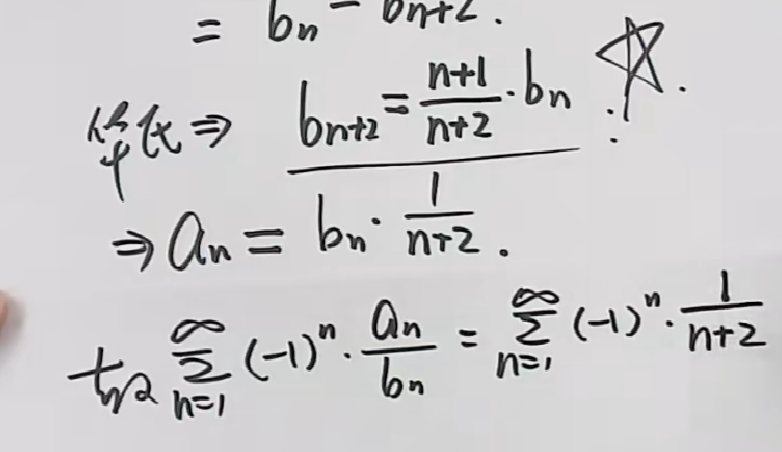 = bn - bn+2.
华氏⇒ bn+2 = (n+1)/(n+2) · bn ☆.
⇒ an = bn · 1/(n+2).
故 ∑_{n=1}^{∞} (-1)^n · an/bn = ∑_{n=1}^{∞} (-1)^n · 1/(n+2)